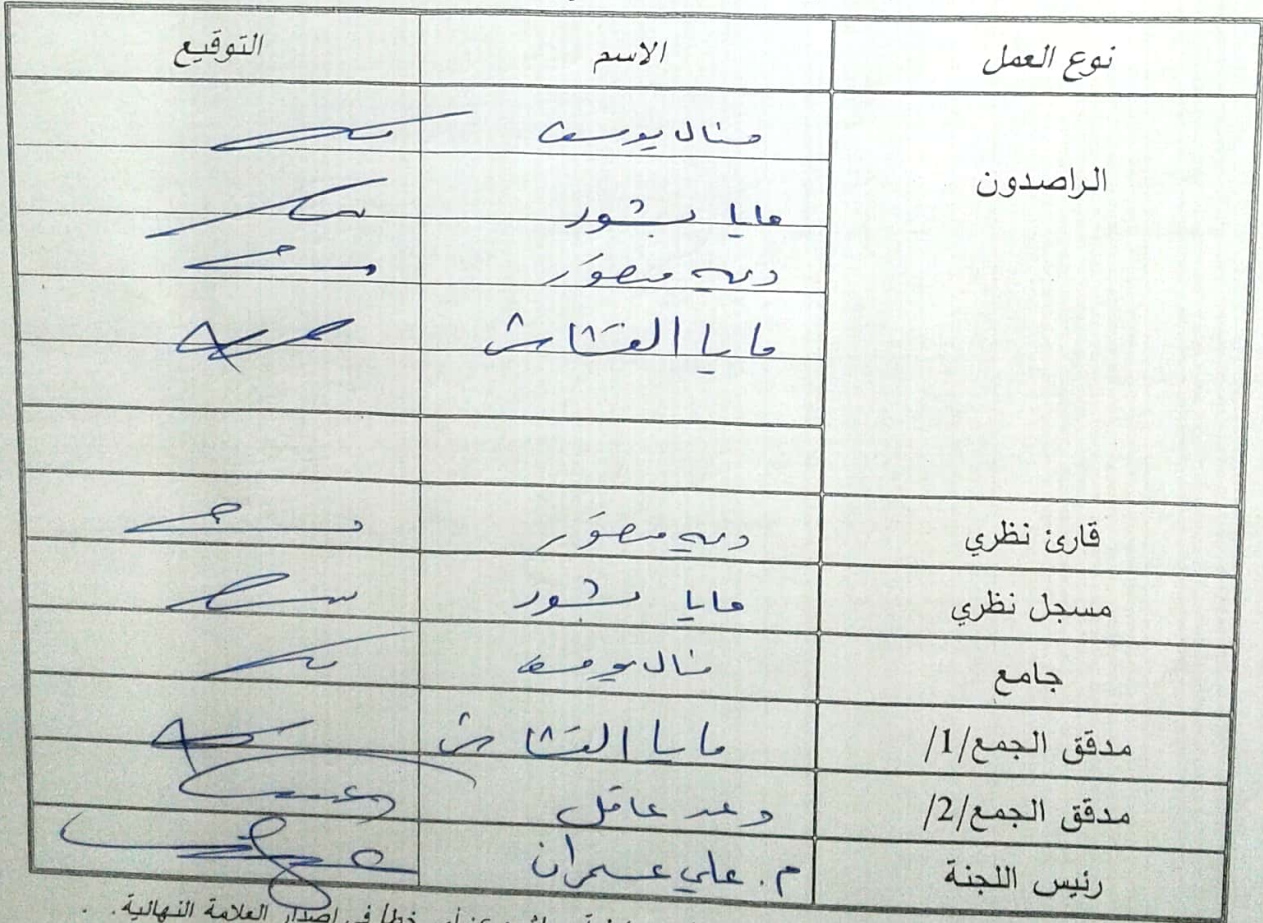 نوع العمل الاسم التوقيع
الراصدون منال يوسف
مايا بشور
ديمه منصور
مايا القشاش
قارئ نظري ديمه منصور
مسجل نظري مايا بشور
جامع منال يوسف
مدقق الجمع/1/ مايا القشاش
مدقق الجمع/2/ وعد عاقل
رئيس اللجنة م. علي عمران
عن أي خطأ في إصدار العلامة النهائية.